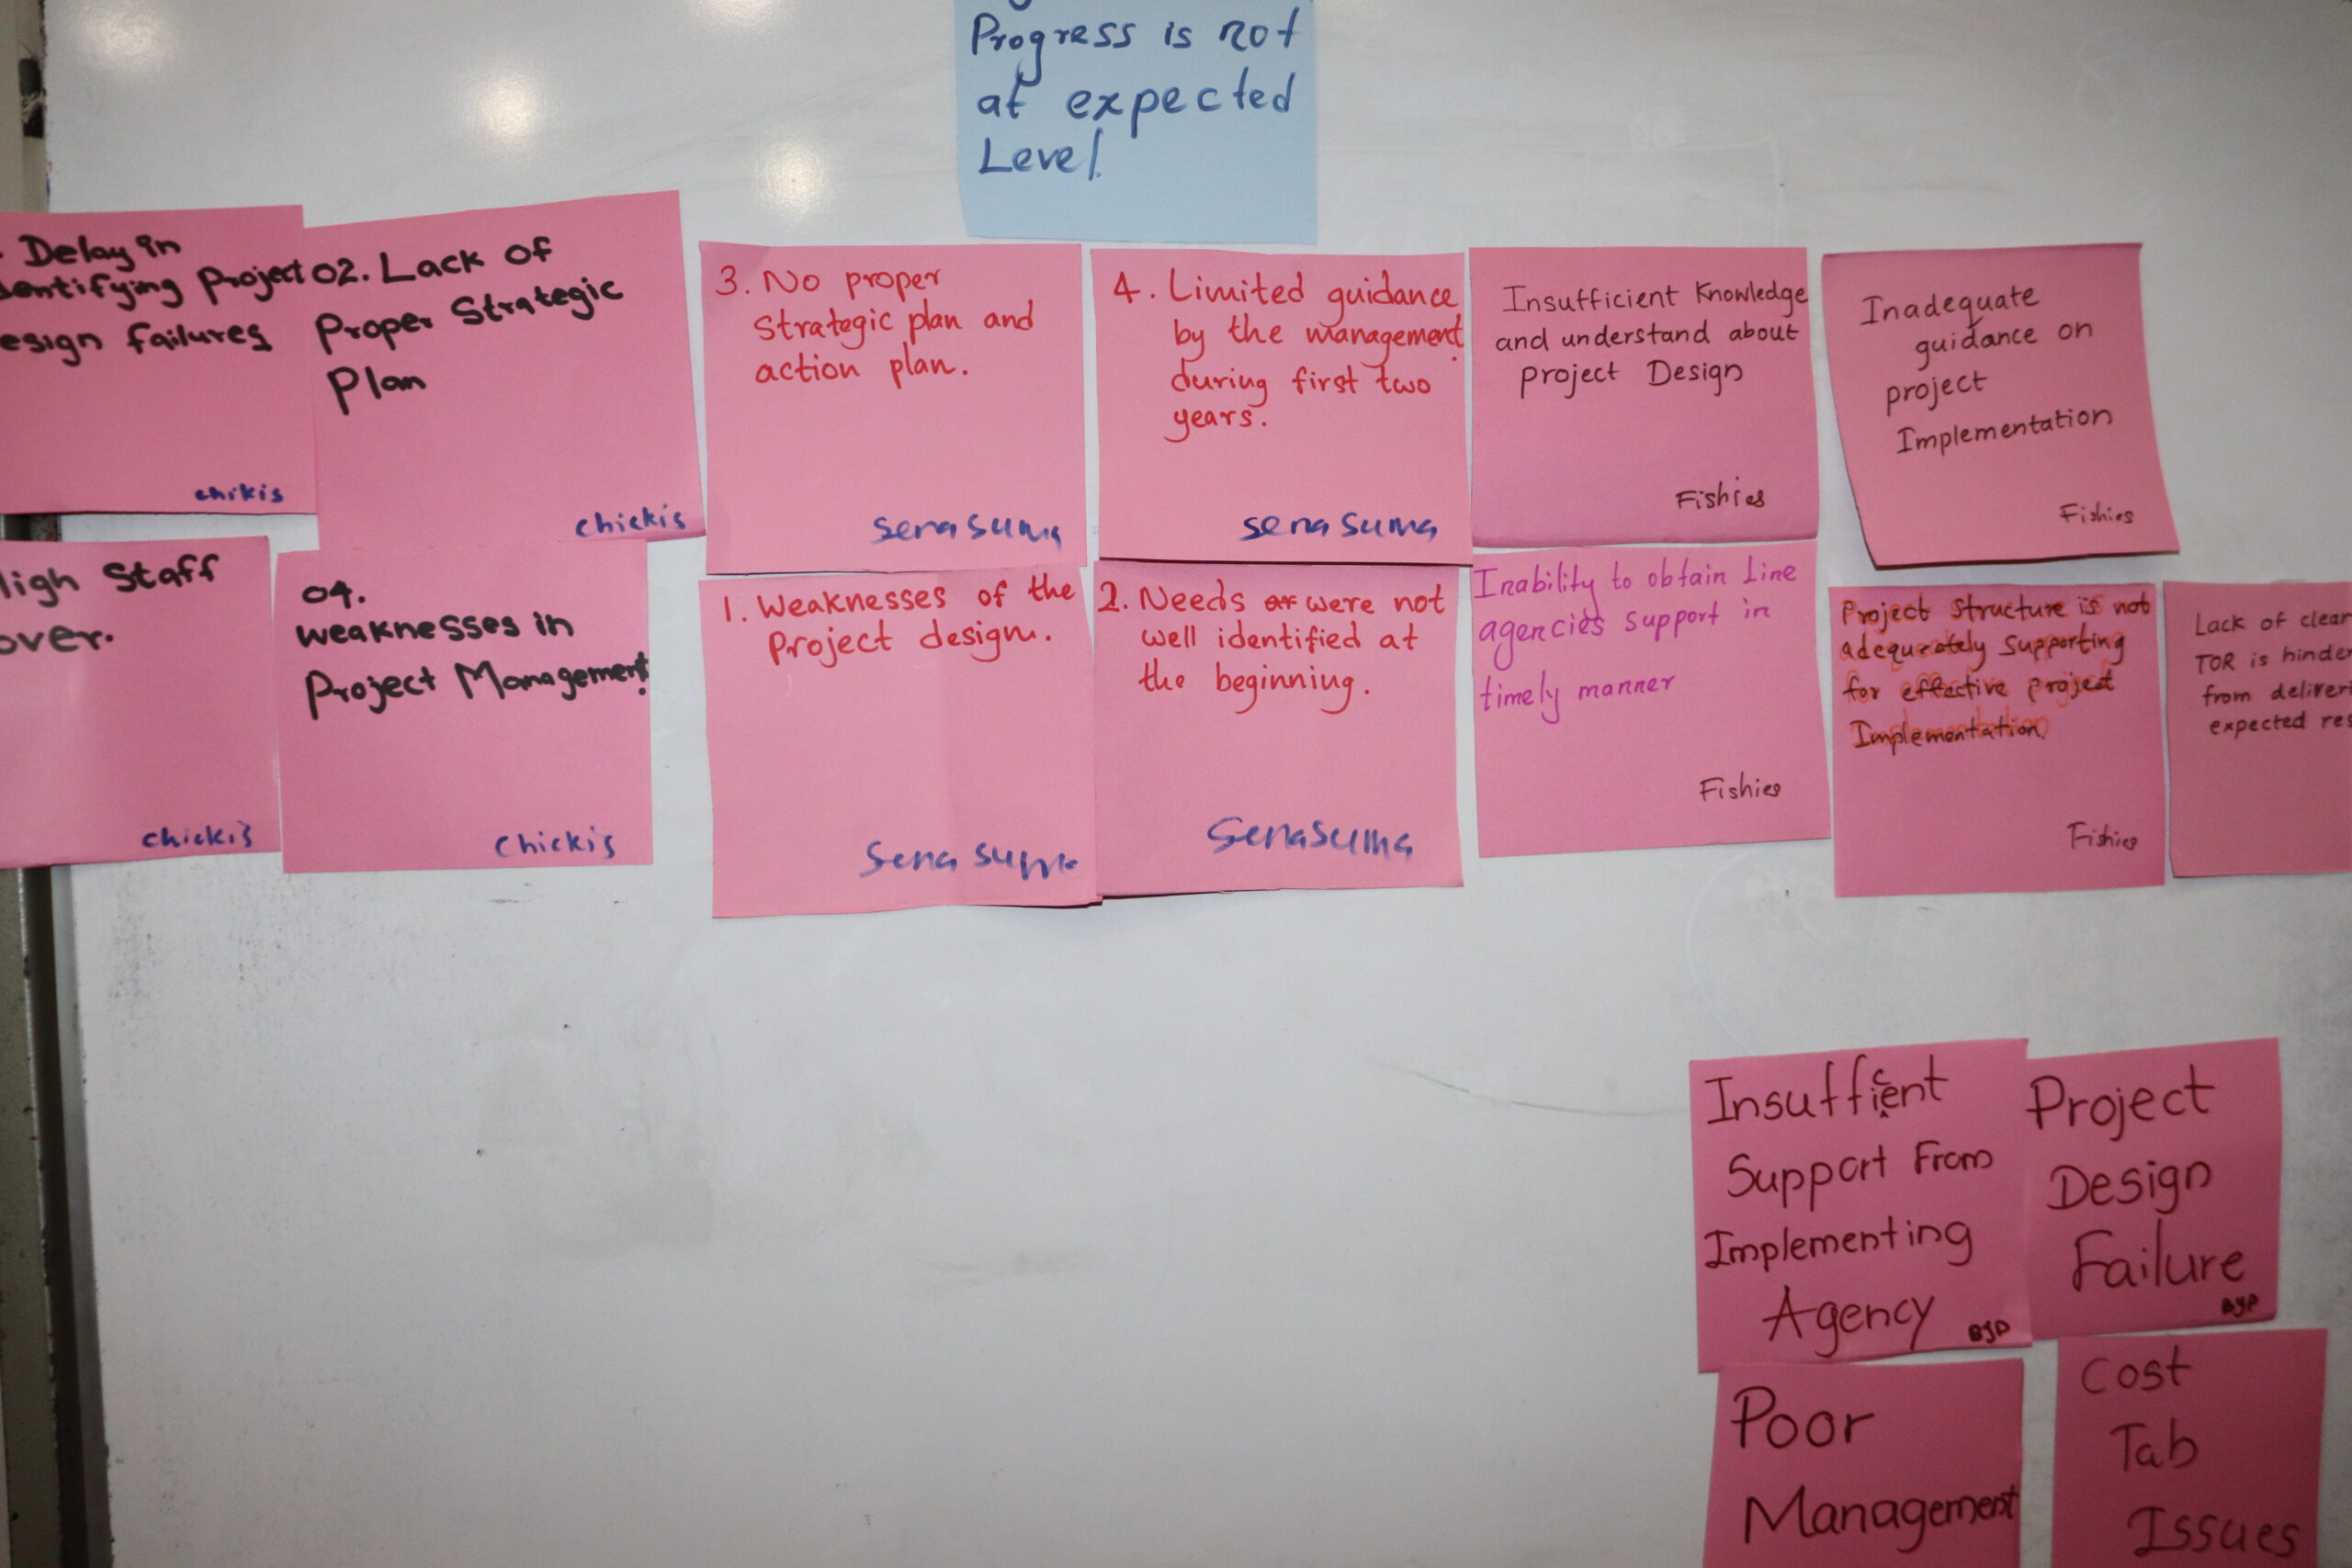 Progress is not
at expected
Level.
Delay in
project
failures
chikis
02. Lack of
Proper Strategic
Plan
chickis
3. No proper
strategic plan and
action plan.
Sena Suma
4. Limited guidance
by the management
during first two
years.
Sena Suma
Insufficient Knowledge
and understand about
project Design
Fishies
Inadequate
guidance on
project
Implementation
Fishies
Staff
over.
chickis
04.
weaknesses in
Project Management.
Chickis
1. Weaknesses of the
Project design.
Sena Suma
2. Needs were not
well identified at
the beginning.
Sena Suma
Inability to obtain line
agencies support in
timely manner
Fishies
Project Structure is not
adequately Supporting
for effective project
Implementation.
Fishies
Lack of clear
TOR is
from
expected
Insufficient
Support From
Implementing
Agency
Project
Design
Failure
Poor
Management
Cost
Tab
Issues